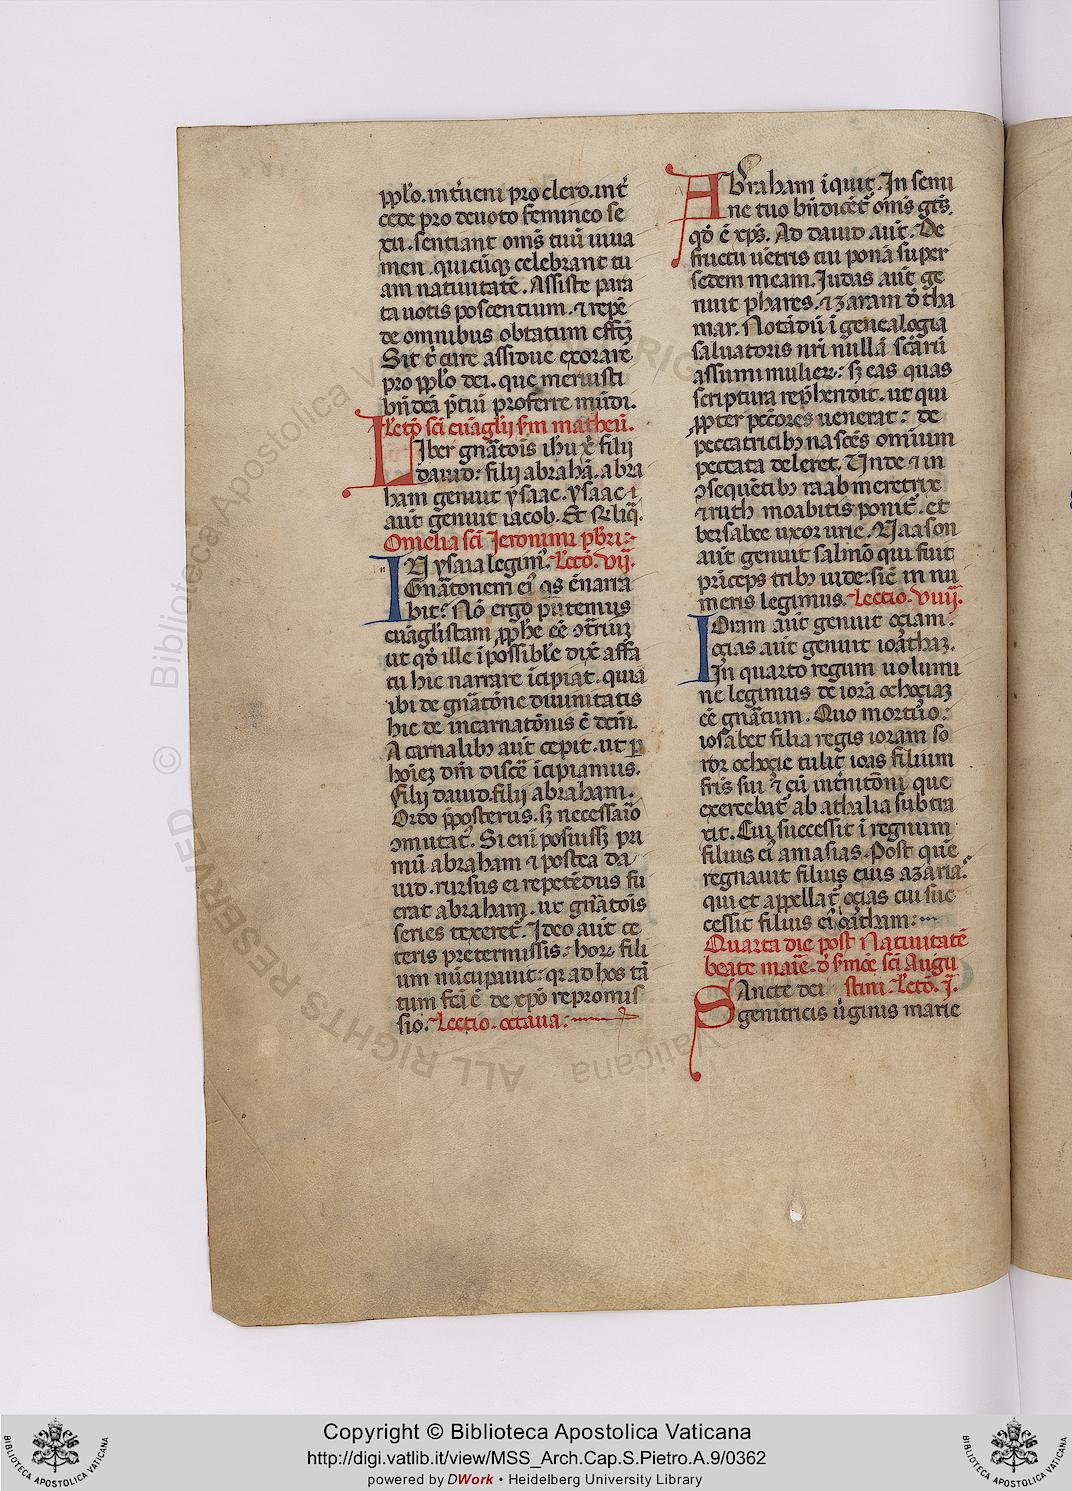 pp̄lo. int̉ueni pro clero. int̉
cede pro deuoto femineo se
xu. sentiant om̄s tuū iuua
men. quicūq; celebrant tu
am natiuitatē. Assiste para
ta uotis poscentium. ⁊ repē
de omnibus obtatum effc̄ꝫ
Sit t̉ cure assidue exorarē
pro pp̄lo dei. que meruisti
bn̄dcā p̄tiū proferre mūdi.
Lc̄tō sc̄i euāglij scd̄m matheū.
Liber gn̄atōis ihū xp̄i filij
dauid: filij abrahā. abra
ham genuit ysaac. ysaac
aūt genuit iacob. Et reliq̄.
Omelia sc̄i Ieronimi pb̄ri:
IN ysaia legim̉. Lc̄tō. vij.
Gn̄atōnem ei᷒ q̄s enarra
bit? Nō ergo putemus
euāglistam ꝓphe eē ɔtrariū
ut qd̉ ille īpossibłe dix̄ affa
tu hic narrare īcipiat. quia
ibi de gn̄atōne diuinitatis
hic de incarnatōnis ē dem̄.
A carnalibꝫ aūt cepit. ut p̱
hoīeꝫ dm̄ discē īcipiamus.
Filij dauid. filij abraham.
Ordo p̄posterus. sꝫ necessaīo
ɔmutat᷒. Si eni posuissꝫ pri
mū abraham ⁊ postea da
uid. rursus ei repetēdus fu
erat abraham. ut gn̄atōis
series texeret᷒. Ideo aūt ce
teris pretermissis. hoꝝ fili
um nūcupauit: qr ad hos tā
tum fc̄a ē de xp̄o repromis
sio. Lectio. octaua:
Abraham īquit. In semi
ne tuo bn̄dicēt᷒ om̄s gēs.
qd̉ ē xp̄s. Ad dauid aūt. De
fructu uētris tui ponā super
sedem meam. Iudas aūt ge
nuit phares. ⁊ zaram d̉ tha
mar. Notādū ī genealogia
saluatoris nr̄i nullā sc̄arū
assumi mulieꝝ: sꝫ eas quas
scriptura rep̄hendit. ut qui
ꝓpter pcc̄ores uenerat: de
peccatricibꝫ nascēs omium
peccata deleret. Unde ⁊ in
ɔsequētibꝫ raab meretrix
⁊ ruth moabitis ponit᷒. et
bersabee uxor urie. Naason
aūt genuit salmō qui fuit
p̄nceps tribꝫ iude: sic̄ in nu
meris legimus. Lectio. viiij.
Ioram aūt genuit oçiam:
oçias aūt genuit ioathaꝫ.
In quarto regum uolumi
ne legimus de iorā ochoçiaꝫ
eē gn̄atum. Quo mortuo:
iosabet filia regis ioram so
ror ochoçie tulit ioas filium
fr̄is sui ⁊ eū int̉nitōni que
exercebat᷒ ab athalia subtra
xit. Cui successit ī regnum
filius ei᷒ amasias. Post quē
regnauit filius eius azarias.
qui et appellat᷒ oçias cui suc
cessit filius ei᷒ ioatham:
Quarta die post Natiuitatē
beate marie. d̉ s̉moē sc̄i Augu
Sancte dei stini. Lc̄tō. j.
genitricis uirginis marie
Copyright © Biblioteca Apostolica Vaticana
http://digi.vatlib.it/view/MSS_Arch.Cap.S.Pietro.A.9/0362
powered by DWork • Heidelberg University Library